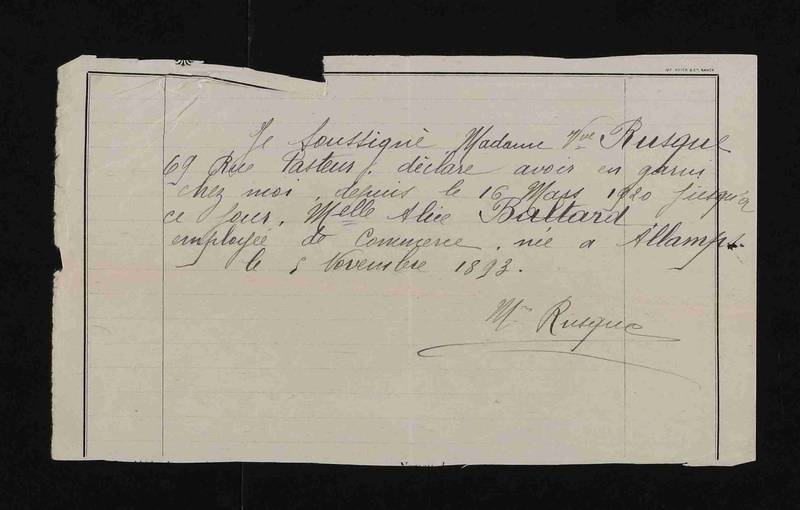 Je soussigné, Madame Vve Rusque
69 Rue Pasteur, déclare avoir en garni
chez moi, depuis le 16 Mars 1920 jusqu'à
ce jour, Melle Alice Baltard
employée de Commerce, née à Allamps
le 5 Novembre 1893.
Me Rusque